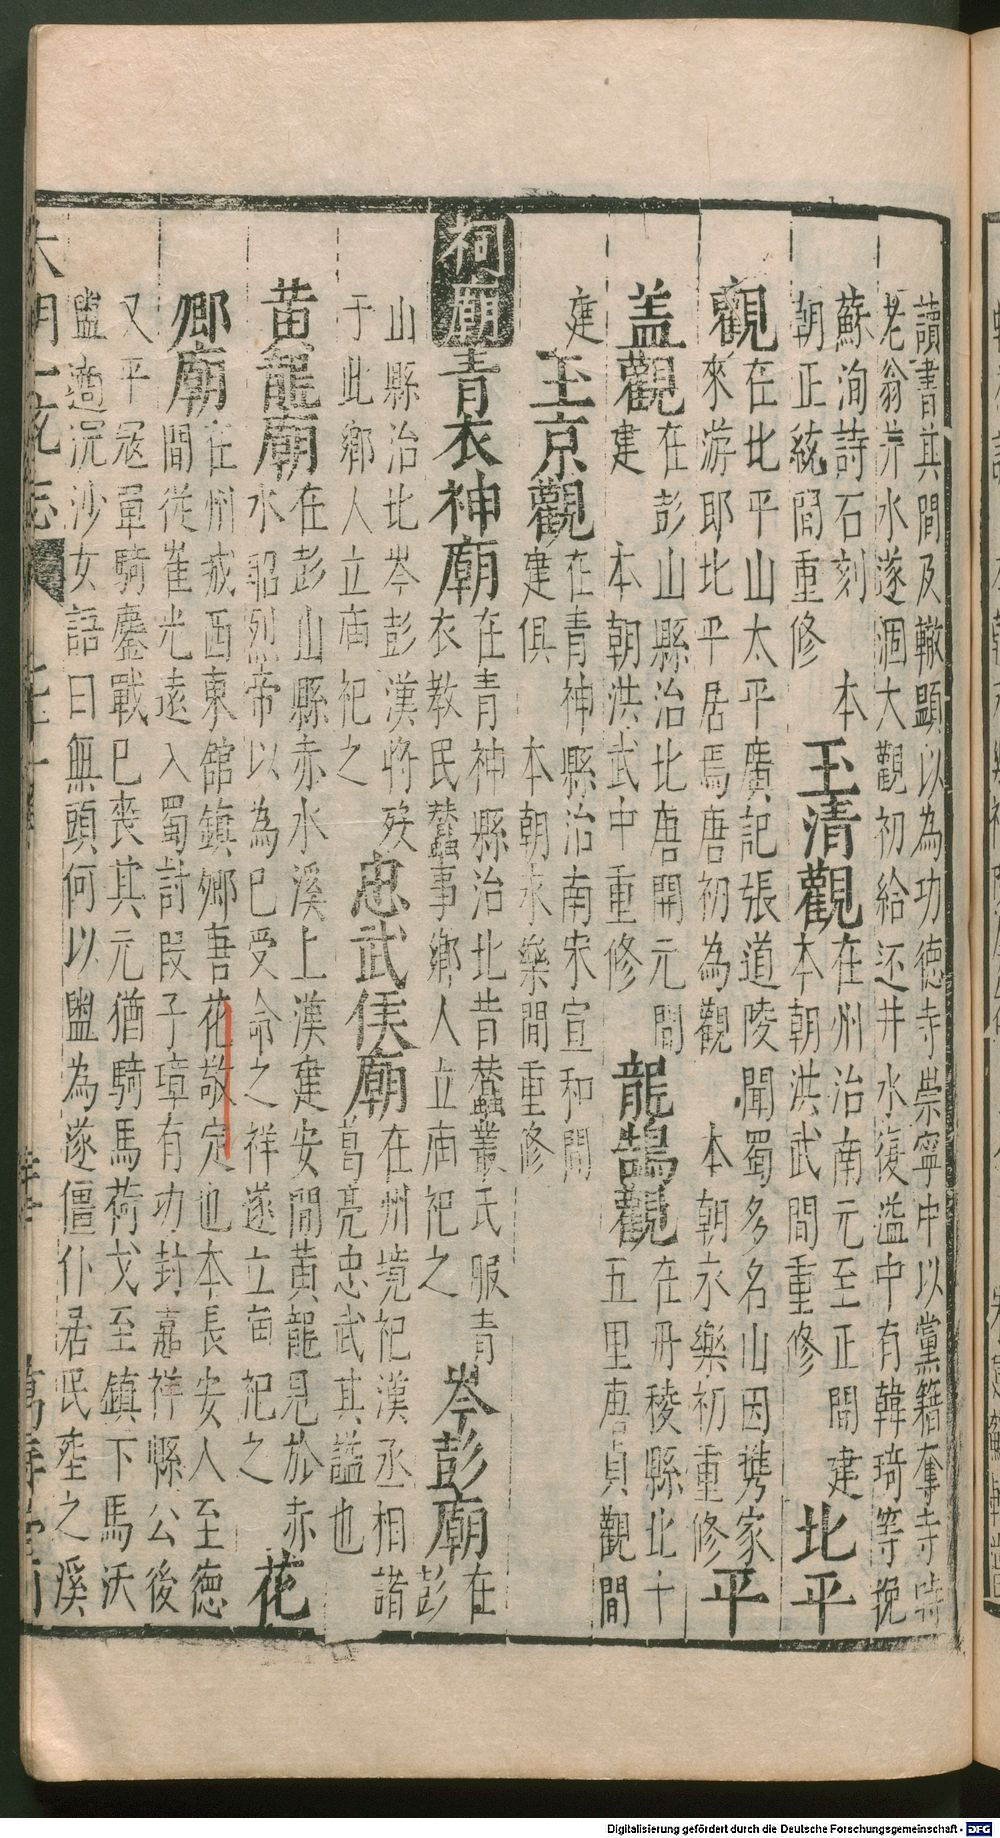 讀書其間及轍顯以為功德寺崇寧中以黨籍奪寺時
老翁井水遂涸大觀初給还井水復溢中有韓琦等挽
蘇洵詩石刻　本
朝正統間重修
玉清觀
在州治南元至正間建
本朝洪武間重修
北平
觀
在北平山太平廣記張道陵聞蜀多名山因携家
來游即北平居焉唐初為觀　本朝永樂初重修
平
盖觀
在彭山縣治北唐開元間
建　本朝洪武中重修
龍鵠觀
在丹稜縣北十
五里唐貞觀間
建
玉京觀
在青神縣治南宋宣和間
建俱　本朝永樂間重修
祠廟
青衣神廟
在青神縣治北昔蠶叢氏服青
衣教民蠶事鄉人立庙祀之
岑彭廟
在彭
山縣治北岑彭漢將殁
于此鄉人立庙祀之
忠武侯廟
在州境祀漢丞相諸
葛亮忠武其謚也
黃龍廟
在彭山縣赤水溪上漢建安間黃龍見於赤
水昭烈帝以為已受命之祥遂立庙祀之
花
卿廟
在州戒酉東館鎮卿吾花敬定也本長安人至德
間從崔光遠入蜀討叚子璋有功封嘉祥縣公後
又平冦單騎鏖戰已丧其元猶騎馬荷戈至鎮下馬沃
盥適浣沙女語曰無頭何以盥為遂僵仆居民塟之溪
大明一統志
萬壽堂刊
Digitalisierung gefördert durch die Deutsche Forschungsgemeinschaft - DFG